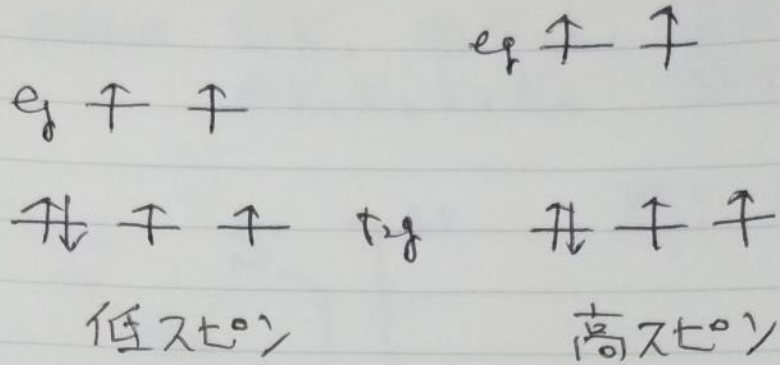 eg
eg
t2g
低スピン 高スピン